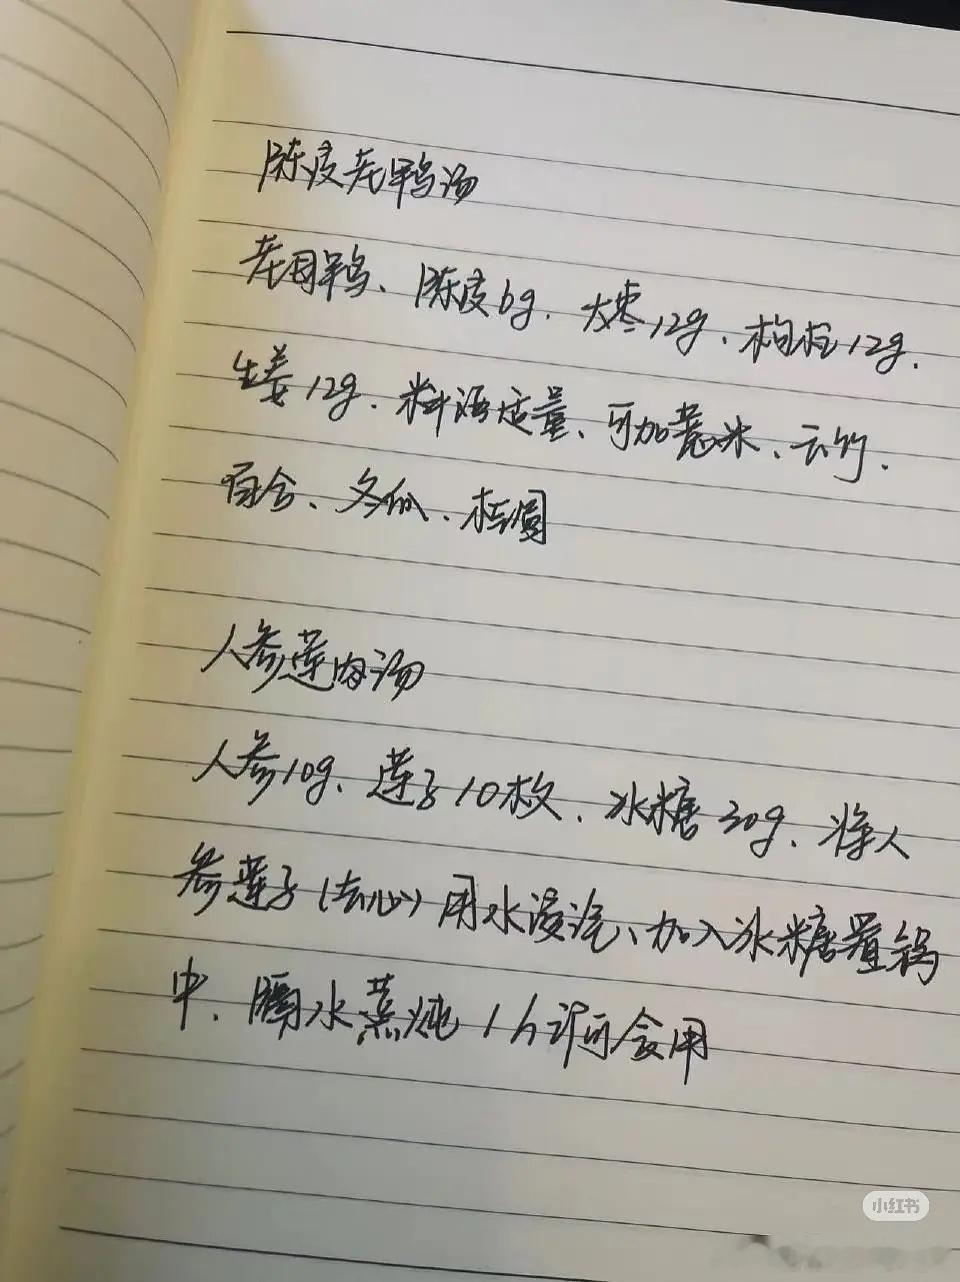 陈皮老鸭汤
老母鸭、陈皮6g、大枣12g、枸杞12g、
生姜12g、料酒适量、可加薏米、玉竹、
百合、冬瓜、桂圆
人参莲肉汤
人参10g、莲子10枚、冰糖30g、将人
参莲子(去心)用水浸泡、加入冰糖置锅
中、隔水蒸炖1h即可食用
小红书